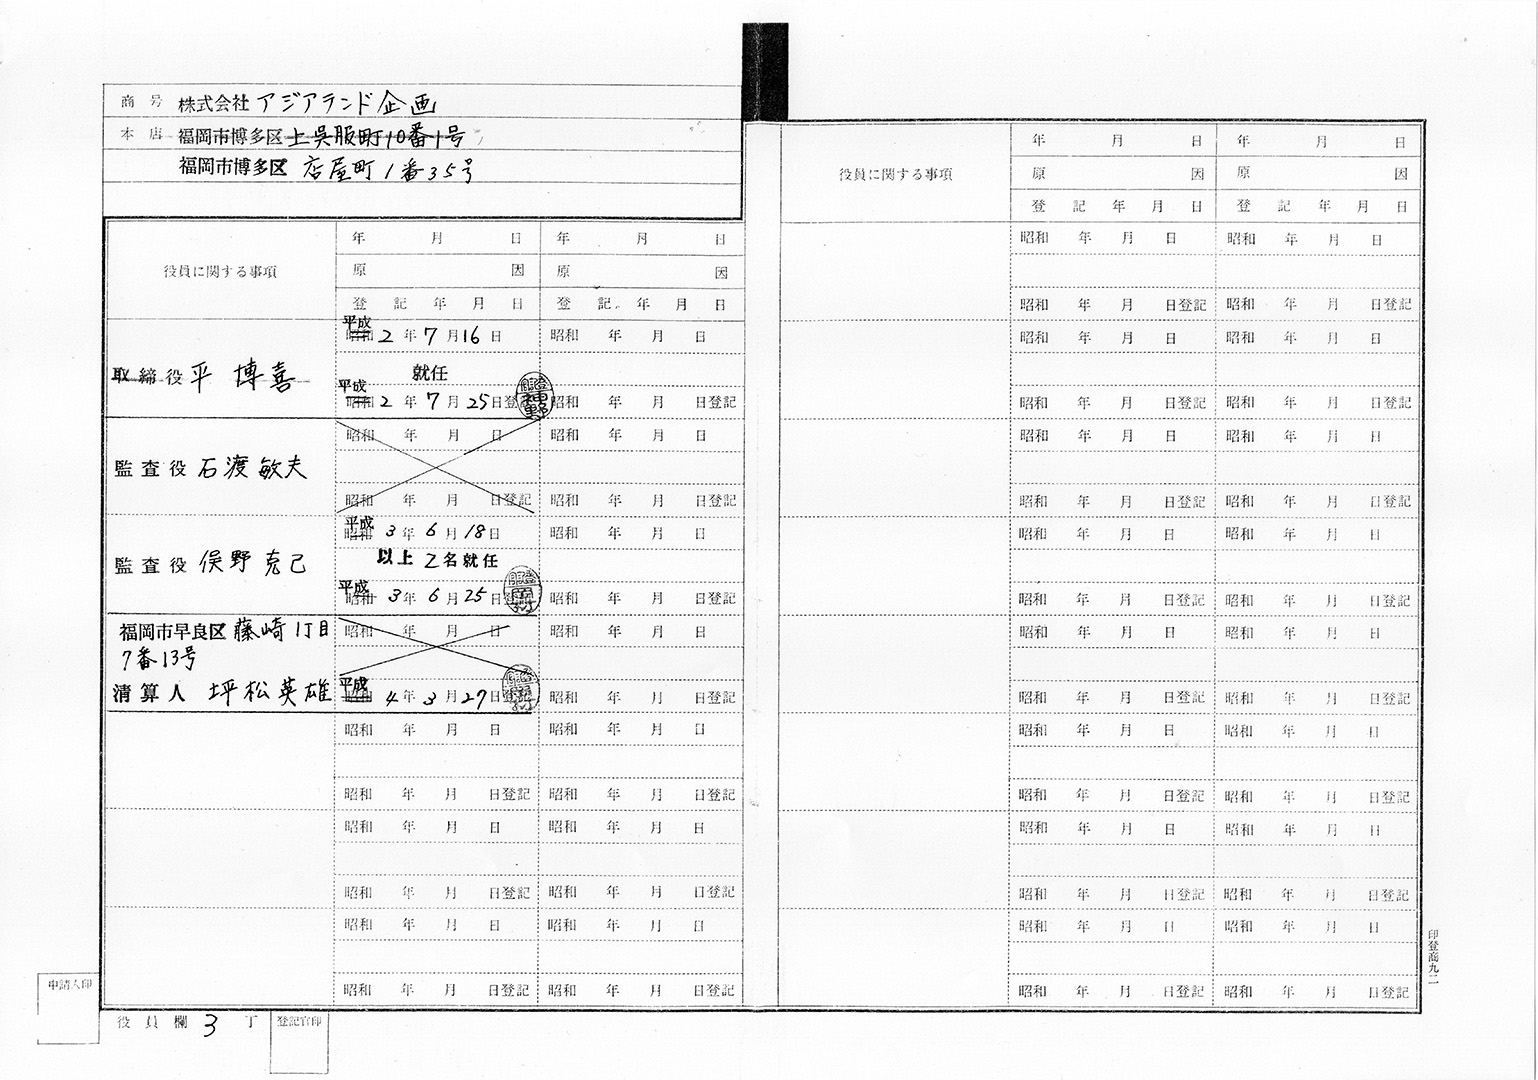 商号 株式会社 アジアランド企画
本店 福岡市博多区上呉服町10番1号
福岡市博多区 店屋町1番35号
役員に関する事項
年 月 日 年 月 日
原 因 原 因
登 記 年 月 日 登 記 年 月 日
取締役 平 博喜
平成 昭和 2年7月16日 昭和 年 月 日
就任
平成 昭和 2年7月25日登記 昭和 年 月 日登記
監査役 石渡敏夫
昭和 年 月 日 昭和 年 月 日
昭和 年 月 日登記 昭和 年 月 日登記
監査役 俣野克己
平成 昭和 3年6月18日 昭和 年 月 日
以上2名就任
平成 昭和 3年6月25日登記 昭和 年 月 日登記
福岡市早良区藤崎1丁目
7番13号
清算人 坪松英雄
昭和 年 月 日 昭和 年 月 日
平成 昭和 4年3月27日登記 昭和 年 月 日登記
昭和 年 月 日 昭和 年 月 日
昭和 年 月 日登記 昭和 年 月 日登記
昭和 年 月 日 昭和 年 月 日
昭和 年 月 日登記 昭和 年 月 日登記
昭和 年 月 日 昭和 年 月 日
昭和 年 月 日登記 昭和 年 月 日登記
申請人印
役員欄 3 丁
登記官印
役員に関する事項
年 月 日 年 月 日
原 因 原 因
登 記 年 月 日 登 記 年 月 日
昭和 年 月 日 昭和 年 月 日
昭和 年 月 日登記 昭和 年 月 日登記
昭和 年 月 日 昭和 年 月 日
昭和 年 月 日登記 昭和 年 月 日登記
昭和 年 月 日 昭和 年 月 日
昭和 年 月 日登記 昭和 年 月 日登記
昭和 年 月 日 昭和 年 月 日
昭和 年 月 日登記 昭和 年 月 日登記
昭和 年 月 日 昭和 年 月 日
昭和 年 月 日登記 昭和 年 月 日登記
昭和 年 月 日 昭和 年 月 日
昭和 年 月 日登記 昭和 年 月 日登記
昭和 年 月 日 昭和 年 月 日
昭和 年 月 日登記 昭和 年 月 日登記
昭和 年 月 日 昭和 年 月 日
昭和 年 月 日登記 昭和 年 月 日登記
印登商九二